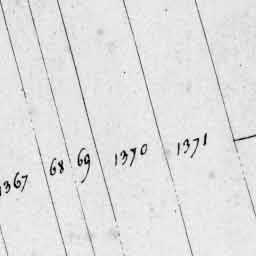 1367 68 69 1370 1371